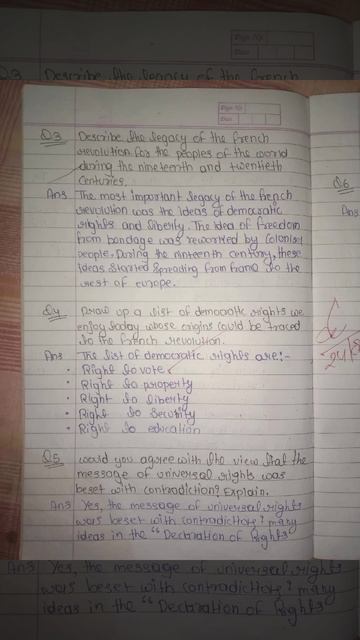 Q.3 Describe the legacy of the french
Page No.
Date
Q3 Describe the legacy of the french
revolution for the peoples of the world
during the nineteenth and twentieth
centuries.
Ans The most important legacy of the french
revolution was the ideas of democratic
rights and liberty. The idea of freedom
from bondage was reworked by colonised
people. During the nineteenth century, these
ideas started spreading from france to the
rest of europe.
Q4 Draw up a list of democratic rights we
enjoy today whose origins could be traced
to the french revolution.
Ans The list of democratic rights are:-
• Right to vote
• Right to property
• Right to liberty
• Right to security
• Right to education
Q5 would you agree with the view that the
message of universal rights was
beset with contradiction? Explain.
Ans Yes, the message of universal rights
was beset with contradictions? many
ideas in the "Declaration of Rights
Q6
Ans
Ans Yes, the message of universal rights
was beset with contradictions? many
ideas in the "Declaration of Rights